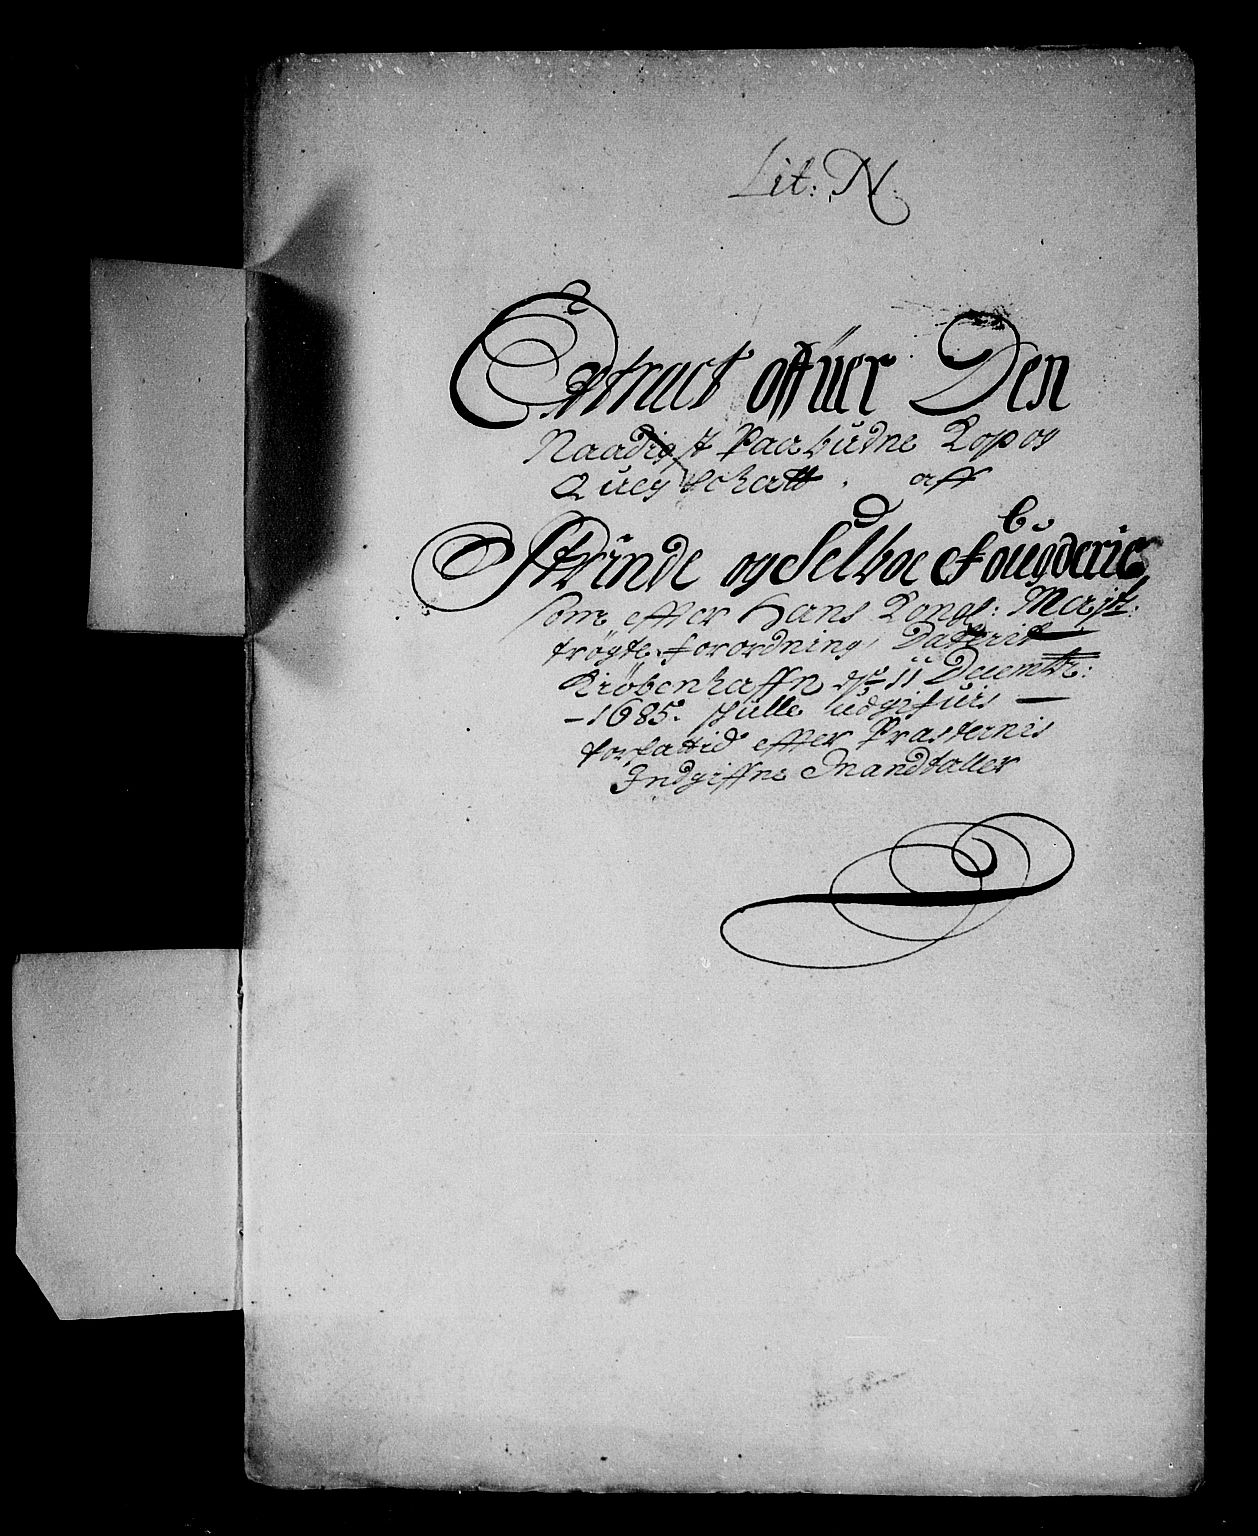 Lit: N.
Extract offuer Den
Naadigst Paabudne Kop og
Quegschatt. aff
Strinde og Selboe Fougderie
som effter Hans Kongl: Majt:
trögte forordning Daterit
Kiöbenhaffn dn 11 Decembr:
-1685. schulle udgifuis —
forfattid effter Præsternis
Indgiffne Mandtaller